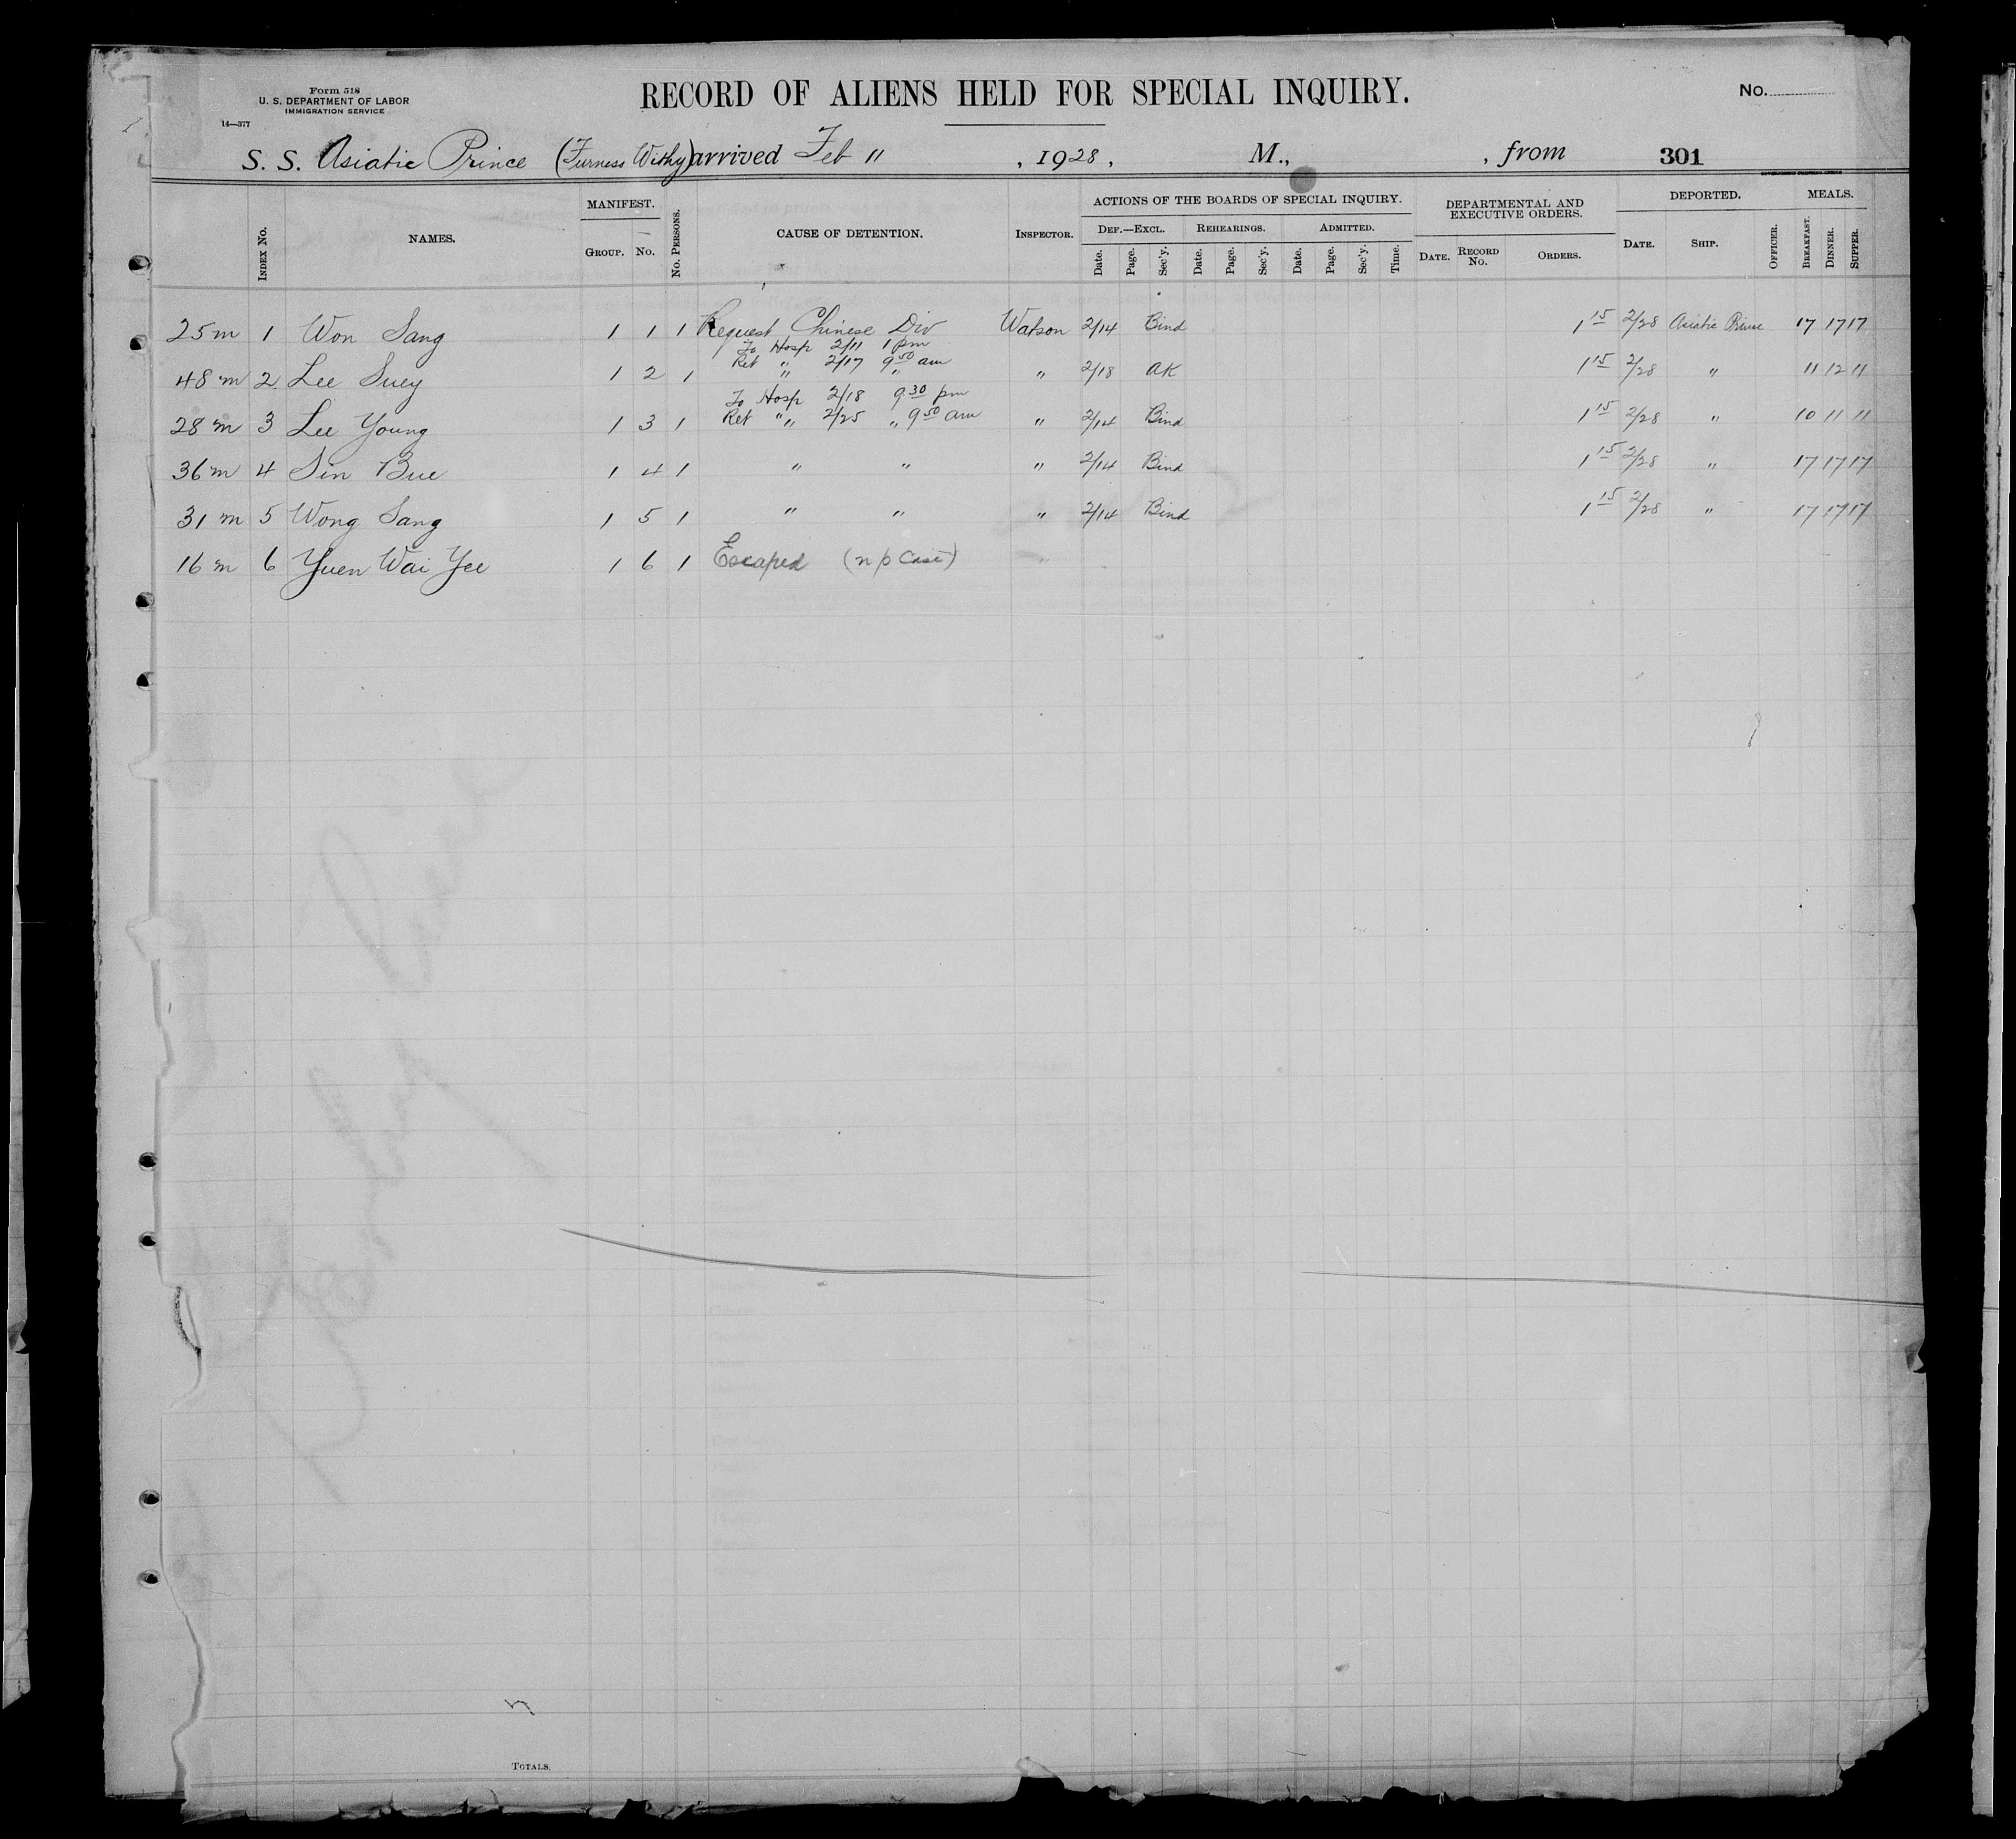 Form 518
U. S. DEPARTMENT OF LABOR
IMMIGRATION SERVICE
14—377
RECORD OF ALIENS HELD FOR SPECIAL INQUIRY.
No.
S. S. Asiatic Prince (Furness Withy) arrived Feb 11, 1928, M., from 301
INDEX NO. NAMES. MANIFEST. GROUP. NO. NO. PERSONS. CAUSE OF DETENTION. INSPECTOR. ACTIONS OF THE BOARDS OF SPECIAL INQUIRY. DEF.—EXCL. Date. Page. Sec'y. REHEARINGS. Date. Page. Sec'y. ADMITTED. Date. Page. Sec'y. Time. DEPARTMENTAL AND EXECUTIVE ORDERS. DATE. RECORD NO. ORDERS. DEPORTED. DATE. SHIP. OFFICER. MEALS. BREAKFAST. DINNER. SUPPER.
25 m 1 Won Sang 1 1 1 Request Chinese Div Watson 2/14 Bind 1 15 2/28 Asiatic Prince 17 17 17
To Hosp 2/11 1 pm
Ret " 2/17 9 50 am
48 m 2 Lee Suey 1 2 1 " " " 2/18 AK 1 15 2/28 " 11 12 11
To Hosp 2/18 9 30 pm
Ret " 2/25 9 50 am
28 m 3 Lee Young 1 3 1 " " " 2/14 Bind 1 15 2/28 " 10 11 11
36 m 4 Sin Bue 1 4 1 " " " 2/14 Bind 1 15 2/28 " 17 17 17
31 m 5 Wong Sang 1 5 1 " " " 2/14 Bind 1 15 2/28 " 17 17 17
16 m 6 Yuen Wai Yee 1 6 1 Escaped (n p Case)
TOTALS